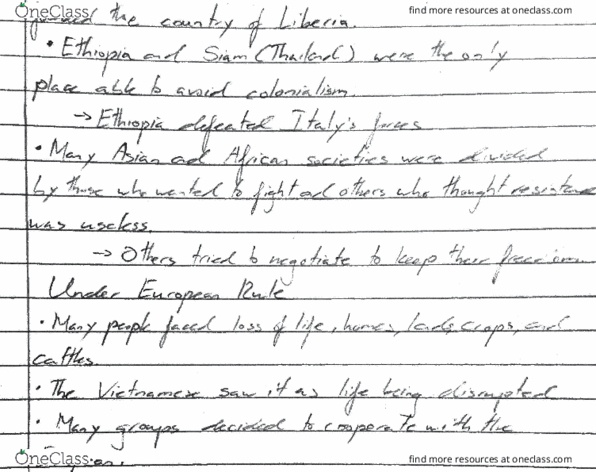 OneClass
find more resources at oneclass.com
the country of Liberia.
• Ethiopia and Siam (Thailand) were the only
place able to avoid colonialism.
→ Ethiopia defeated Italy's forces
• Many Asian and African societies were divided
by those who wanted to fight and others who thought resistance
was useless.
→ Others tried to negotiate to keep their freedom
Under European Rule
• Many people faced loss of life, homes, lands, crops, and
cattles.
• The Vietnamese saw it as life being disrupted
• Many groups decided to cooperate with the
OneClass
find more resources at oneclass.com